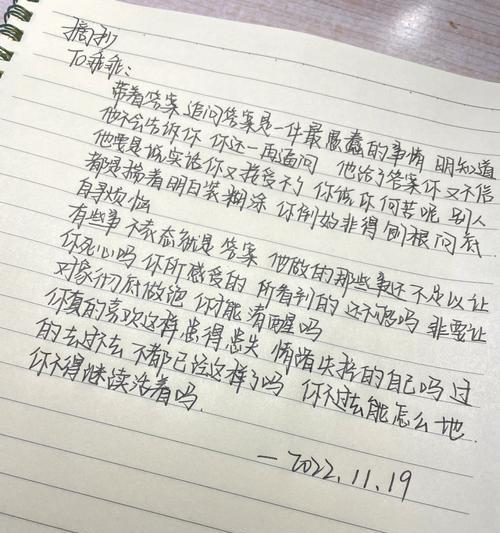 摘抄
To乖乖：
带着答案追问答案是一件最愚蠢的事情 明知道
他不会告诉你 你还一再逼问 他给了答案你又不信
他要是诚实话你又接受不了 你说你何苦呢 别人
都是揣着明白装糊涂 你倒好非得刨根问底
自寻烦恼
有些事不表态就是答案 他做的那些事还不足以让
你死心吗 你所感受的 所看到的还不够吗 非要让
对象彻底做绝 你才能清醒吗
你真的喜欢这样患得患失 情绪失控的自己吗 过
的去过不去 不都已经这样了吗 你不过去能怎么地
你不得继续活着吗.
—2022.11.19